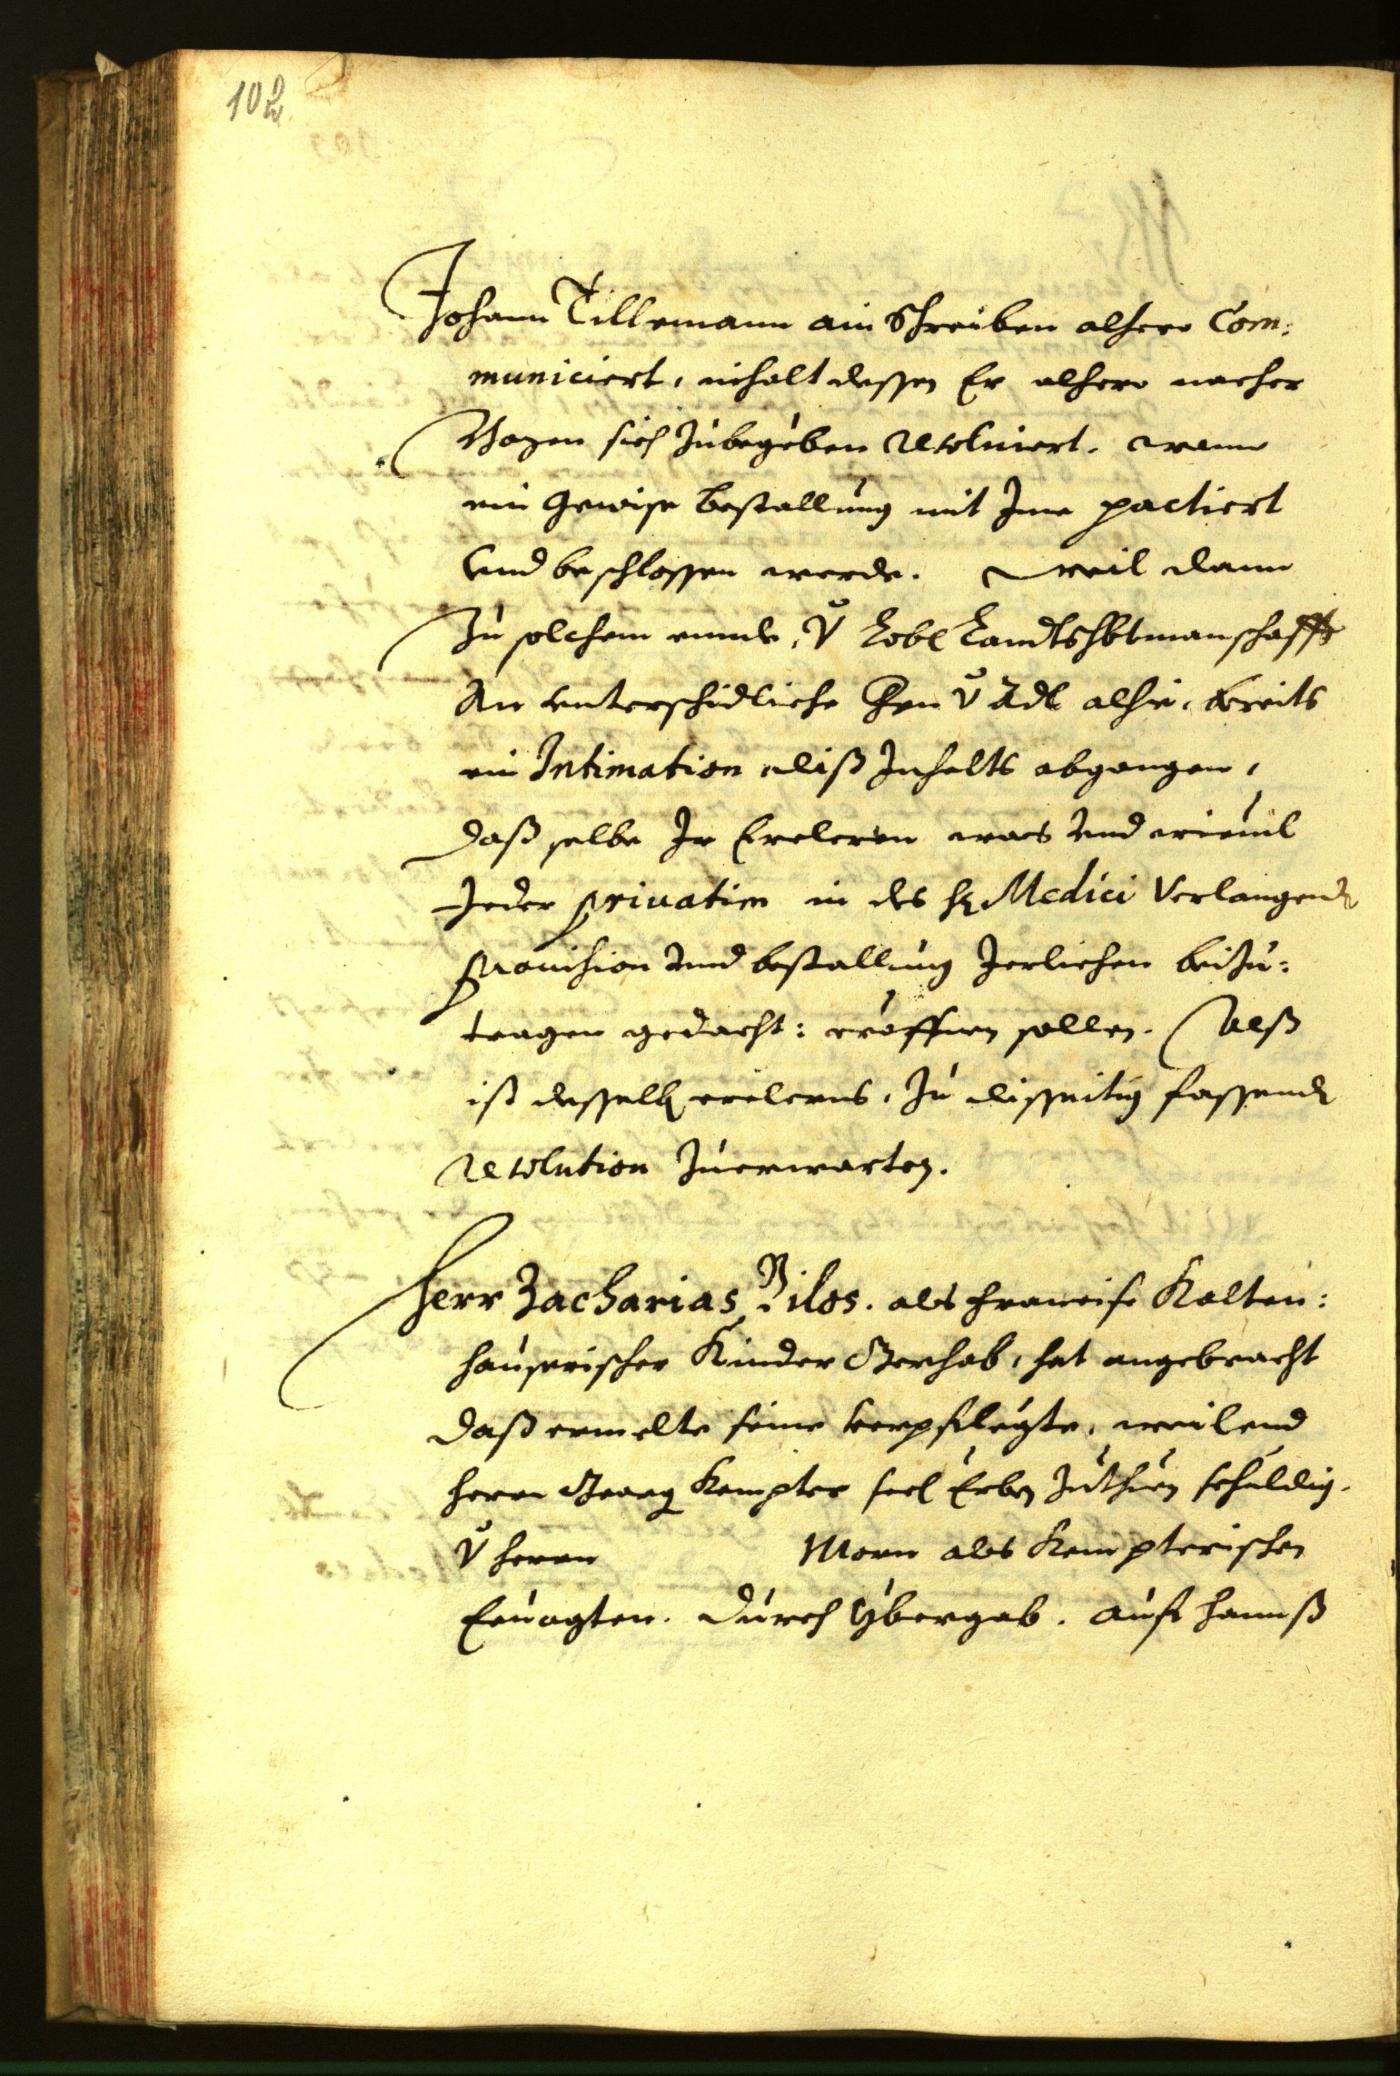 102
Johann Tillemann ain Schreiben alhero Com:
municiert, inhalt dessen Er alhero nacher
Bozen sich zubegeben resoluiert, wann
ein gewise bestallung mit Ime pactiert
vnd beschlossen werde. Weil dann
zu solchem ennde, v Lobl Landtshbtmanschafft
An vnterschidliche Hrn v Adl alhie, bereits
ein Intimation diß Inhalts abgangen,
daß selbe Ir Ercleren was vnd wieuil
Jeder priuatim in des H Medici verlangende
prouision vnd bestallung Jerlichen beizu:
tragen gedacht: eröffnen sollen. Alß
ist desselb erclerens, zu disseitig fassende
resolution zuerwarten.
Herr Zacharias Gilos. als Francisc Kalten:
hauserischer Kinder Gerhab, hat angebracht
daß ermelte seine verpflegte, weilend
herrn Georg Kempter seel Erben zuthun schuldig.
v herrn Morn als Kempterischen
Eruogten. durch ybergab. aufs hannß